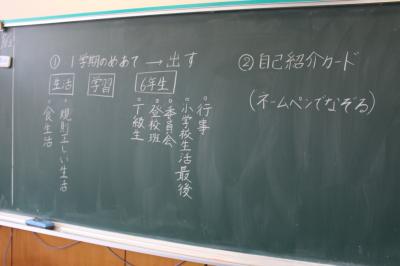 ① 1学期のめあて → 出す
生活
・規則正しい生活
・食生活
学習
6年生
行事
小学校生活最後
委員会
登校班
下級生
② 自己紹介カード
(ネームペンでなぞる)